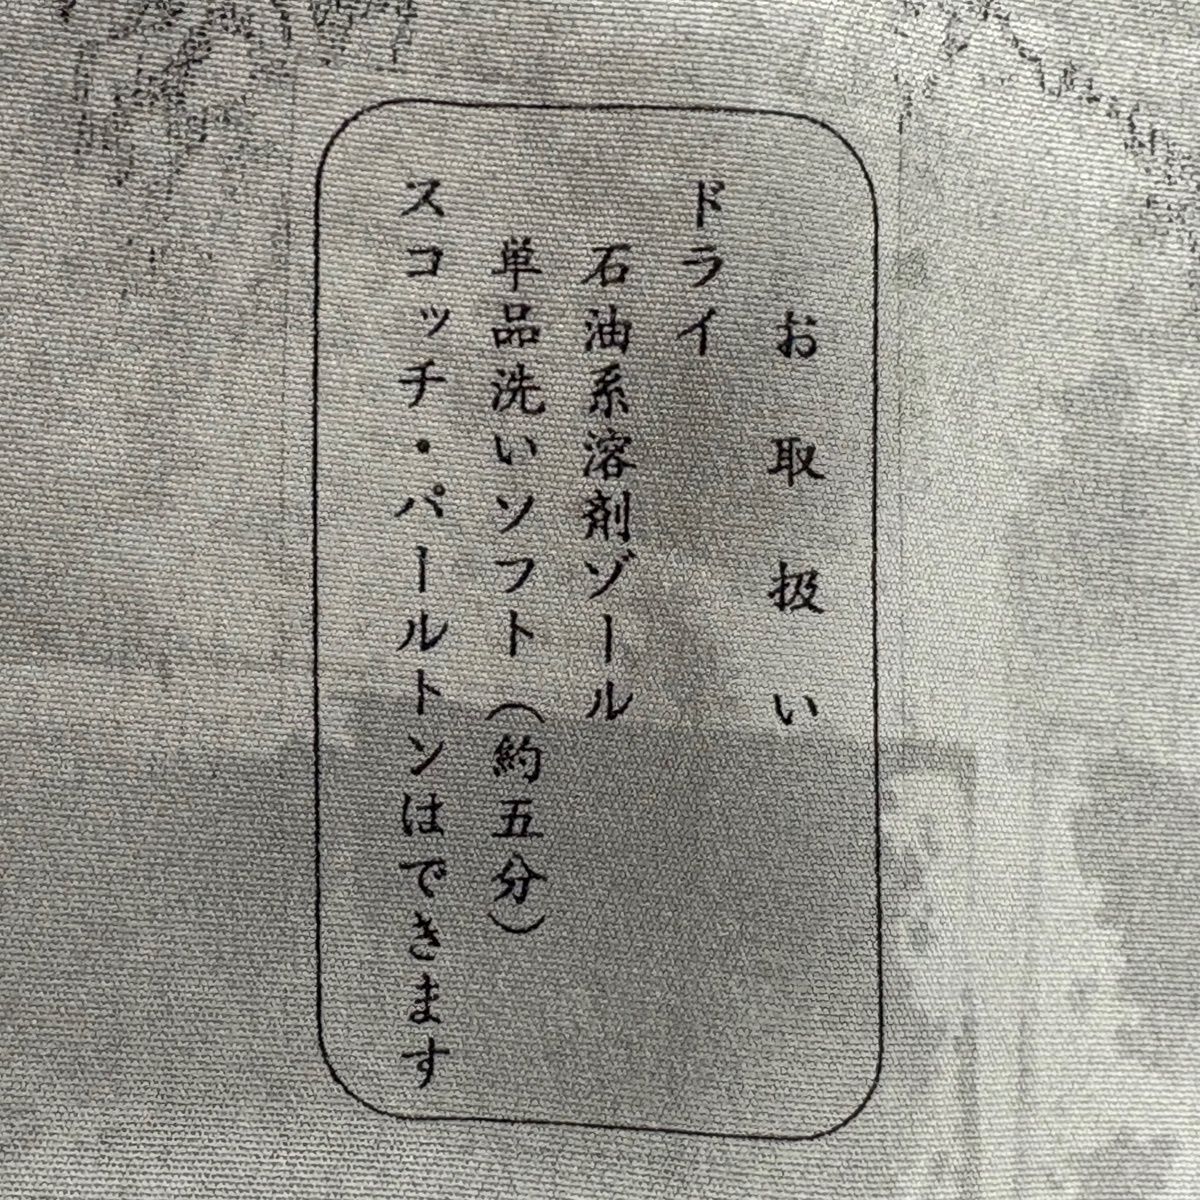 お取扱い
ドライ
石油系溶剤ゾール
単品洗いソフト（約五分）
スコッチ・パールトンはできます